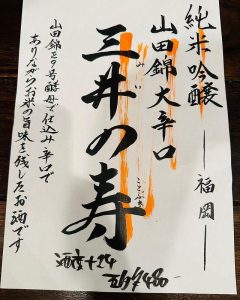 純米吟醸
福岡
山田錦大辛口
三井の寿
みい
ことぶき
山田錦と9号酵母で仕込み辛口で
ありながらお米の旨味を残したお酒です
酒度+14
¥480